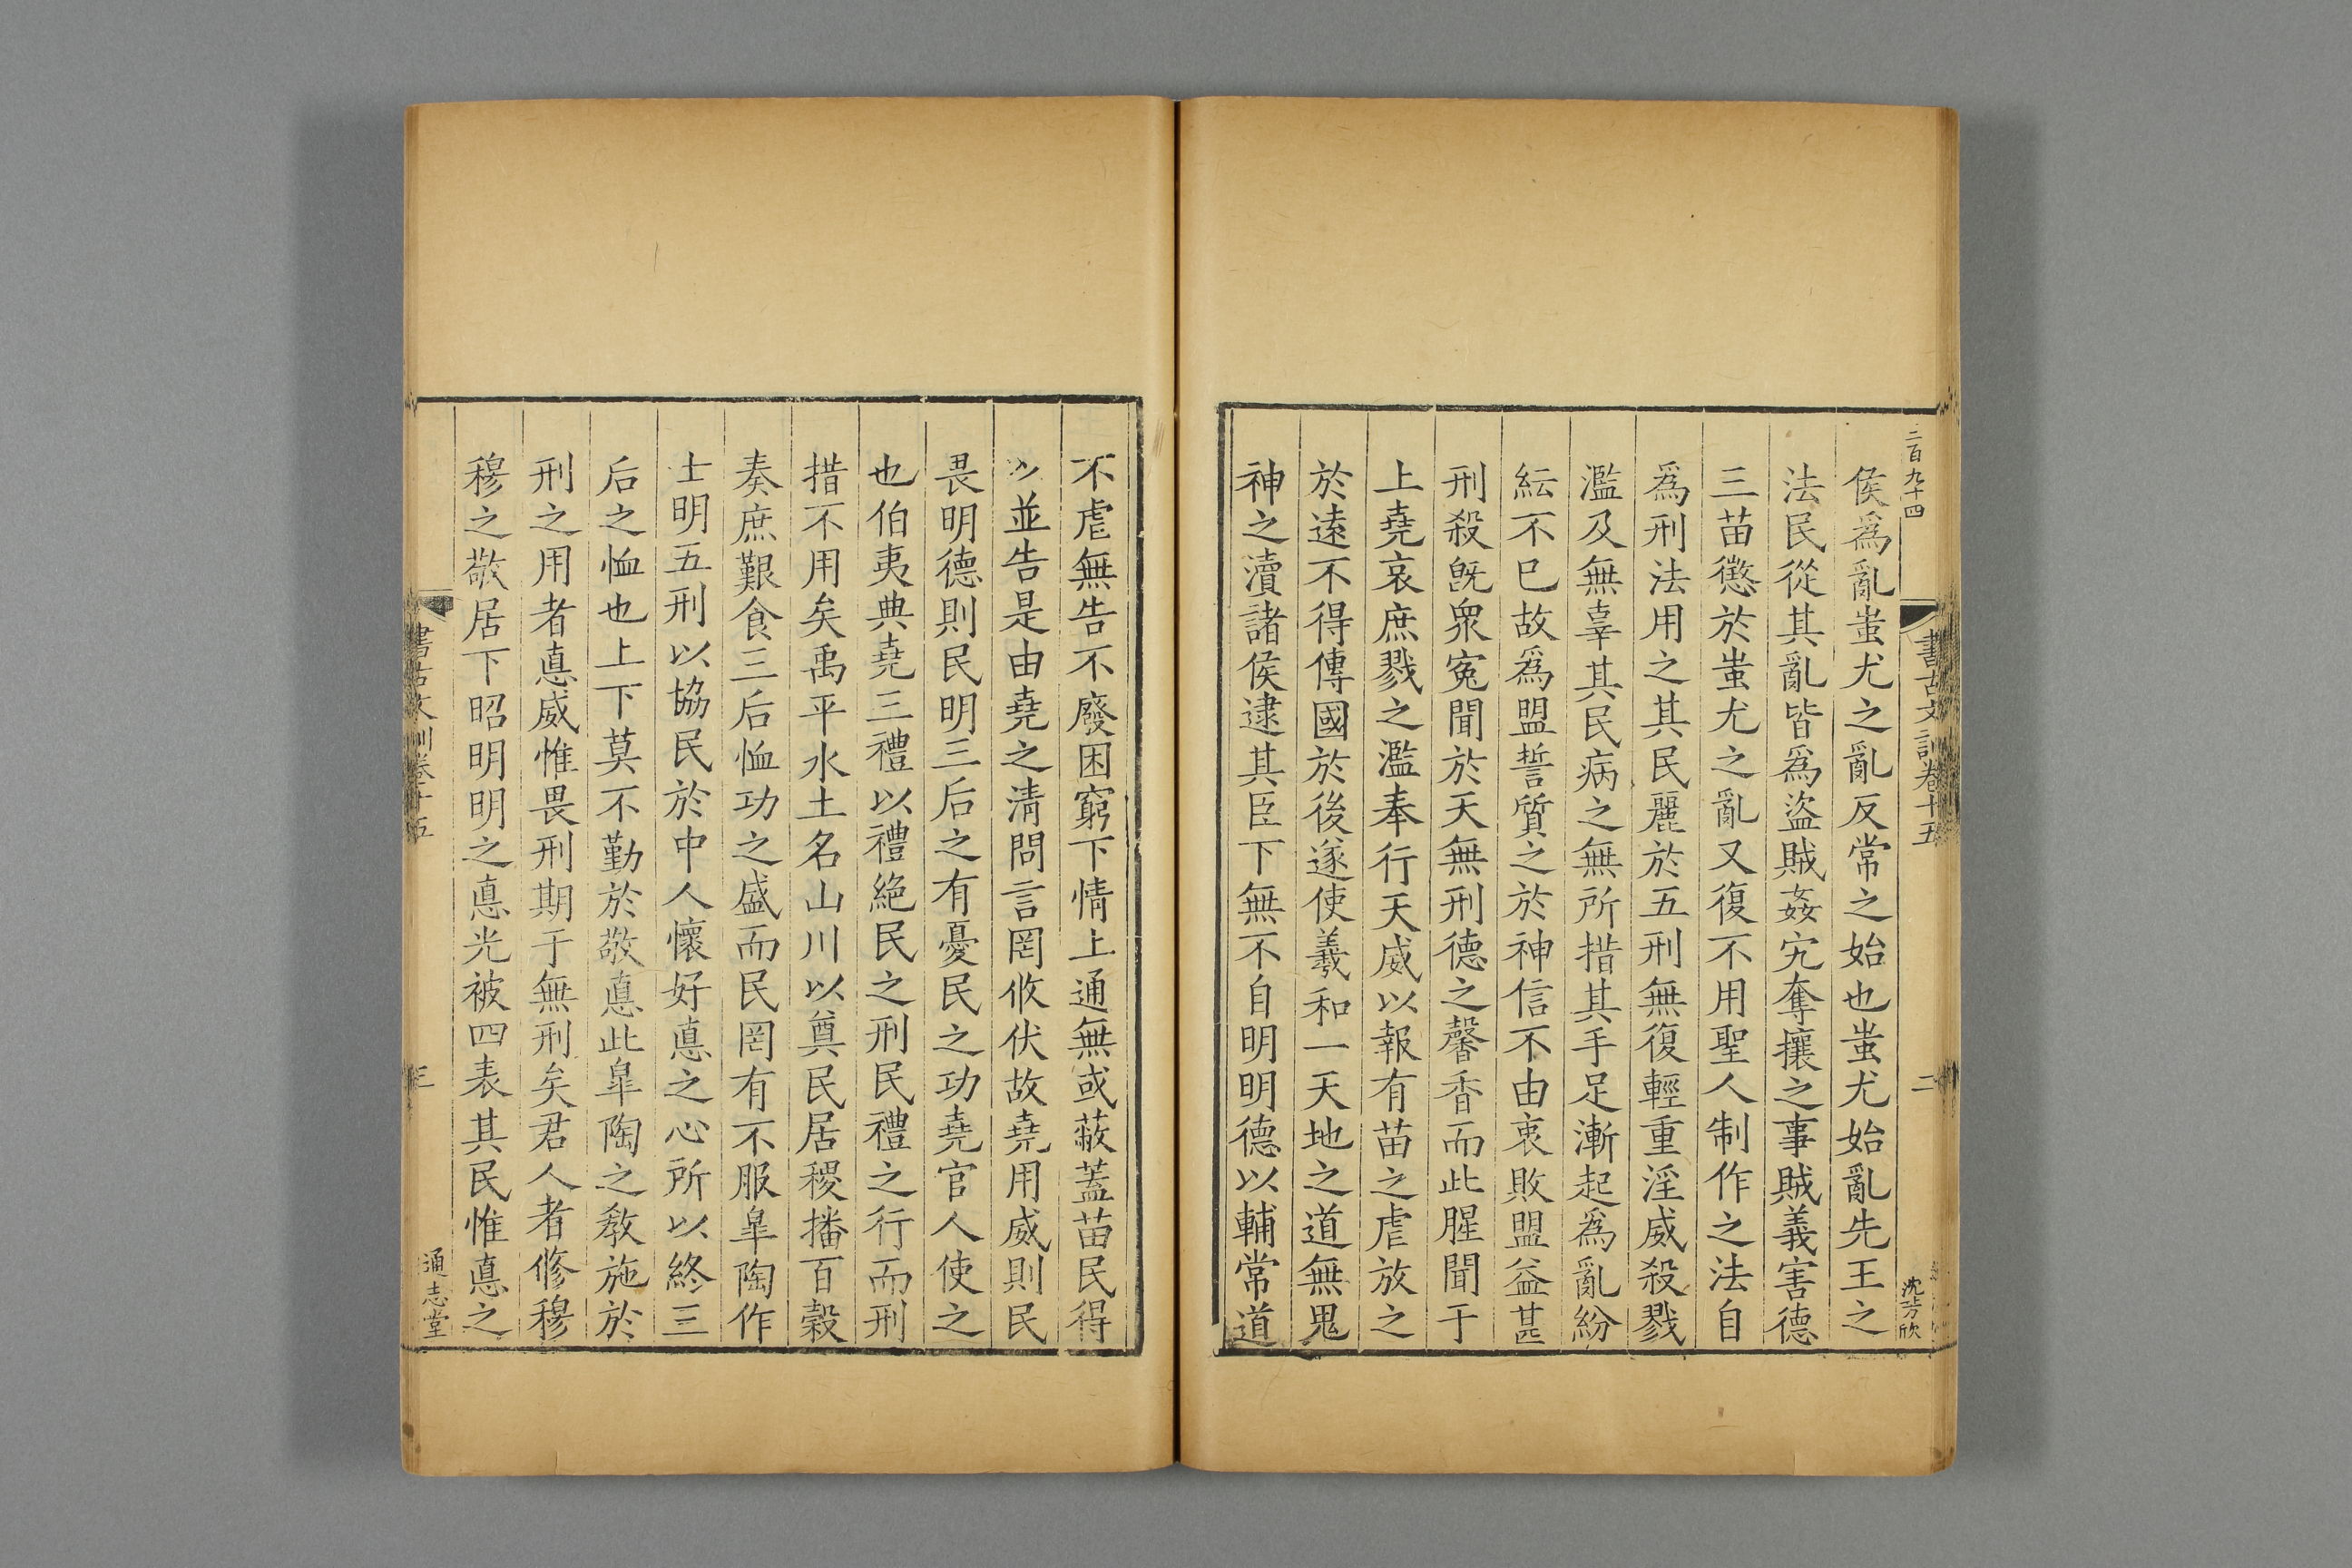 二百九十四
書古文訓卷十五
二
沈芳欣
侯爲亂蚩尤之亂反常之始也蚩尤始亂先王之
法民從其亂皆爲盜賊姦宄奪攘之事賊義害德
三苗懲於蚩尤之亂又復不用聖人制作之法自
爲刑法用之其民麗於五刑無復輕重淫威殺戮
濫及無辜其民病之無所措其手足漸起爲亂紛
紜不已故爲盟誓質之於神信不由衷敗盟益甚
刑殺旣衆寃聞於天無刑德之馨香而此腥聞于
上堯哀庶戮之濫奉行天威以報有苗之虐放之
於逺不得傳國於後遂使羲和一天地之道無鬼
神之瀆諸侯逮其臣下無不自明明德以輔常道
不虐無告不廢困窮下情上通無或蔽蓋苗民得
以並告是由堯之淸問言罔攸伏故堯用威則民
畏明德則民明三后之有憂民之功堯官人使之
也伯夷典堯三禮以禮絶民之刑民禮之行而刑
措不用矣禹平水土名山川以奠民居稷播百穀
奏庶艱食三后恤功之盛而民罔有不服臯陶作
士明五刑以協民於中人懷好悳之心所以終三
后之恤也上下莫不勤於敬悳此臯陶之敎施於
刑之用者悳威惟畏刑期于無刑矣君人者修穆
穆之敬居下昭明明之悳光被四表其民惟悳之
書古文訓卷十五
三
通志堂